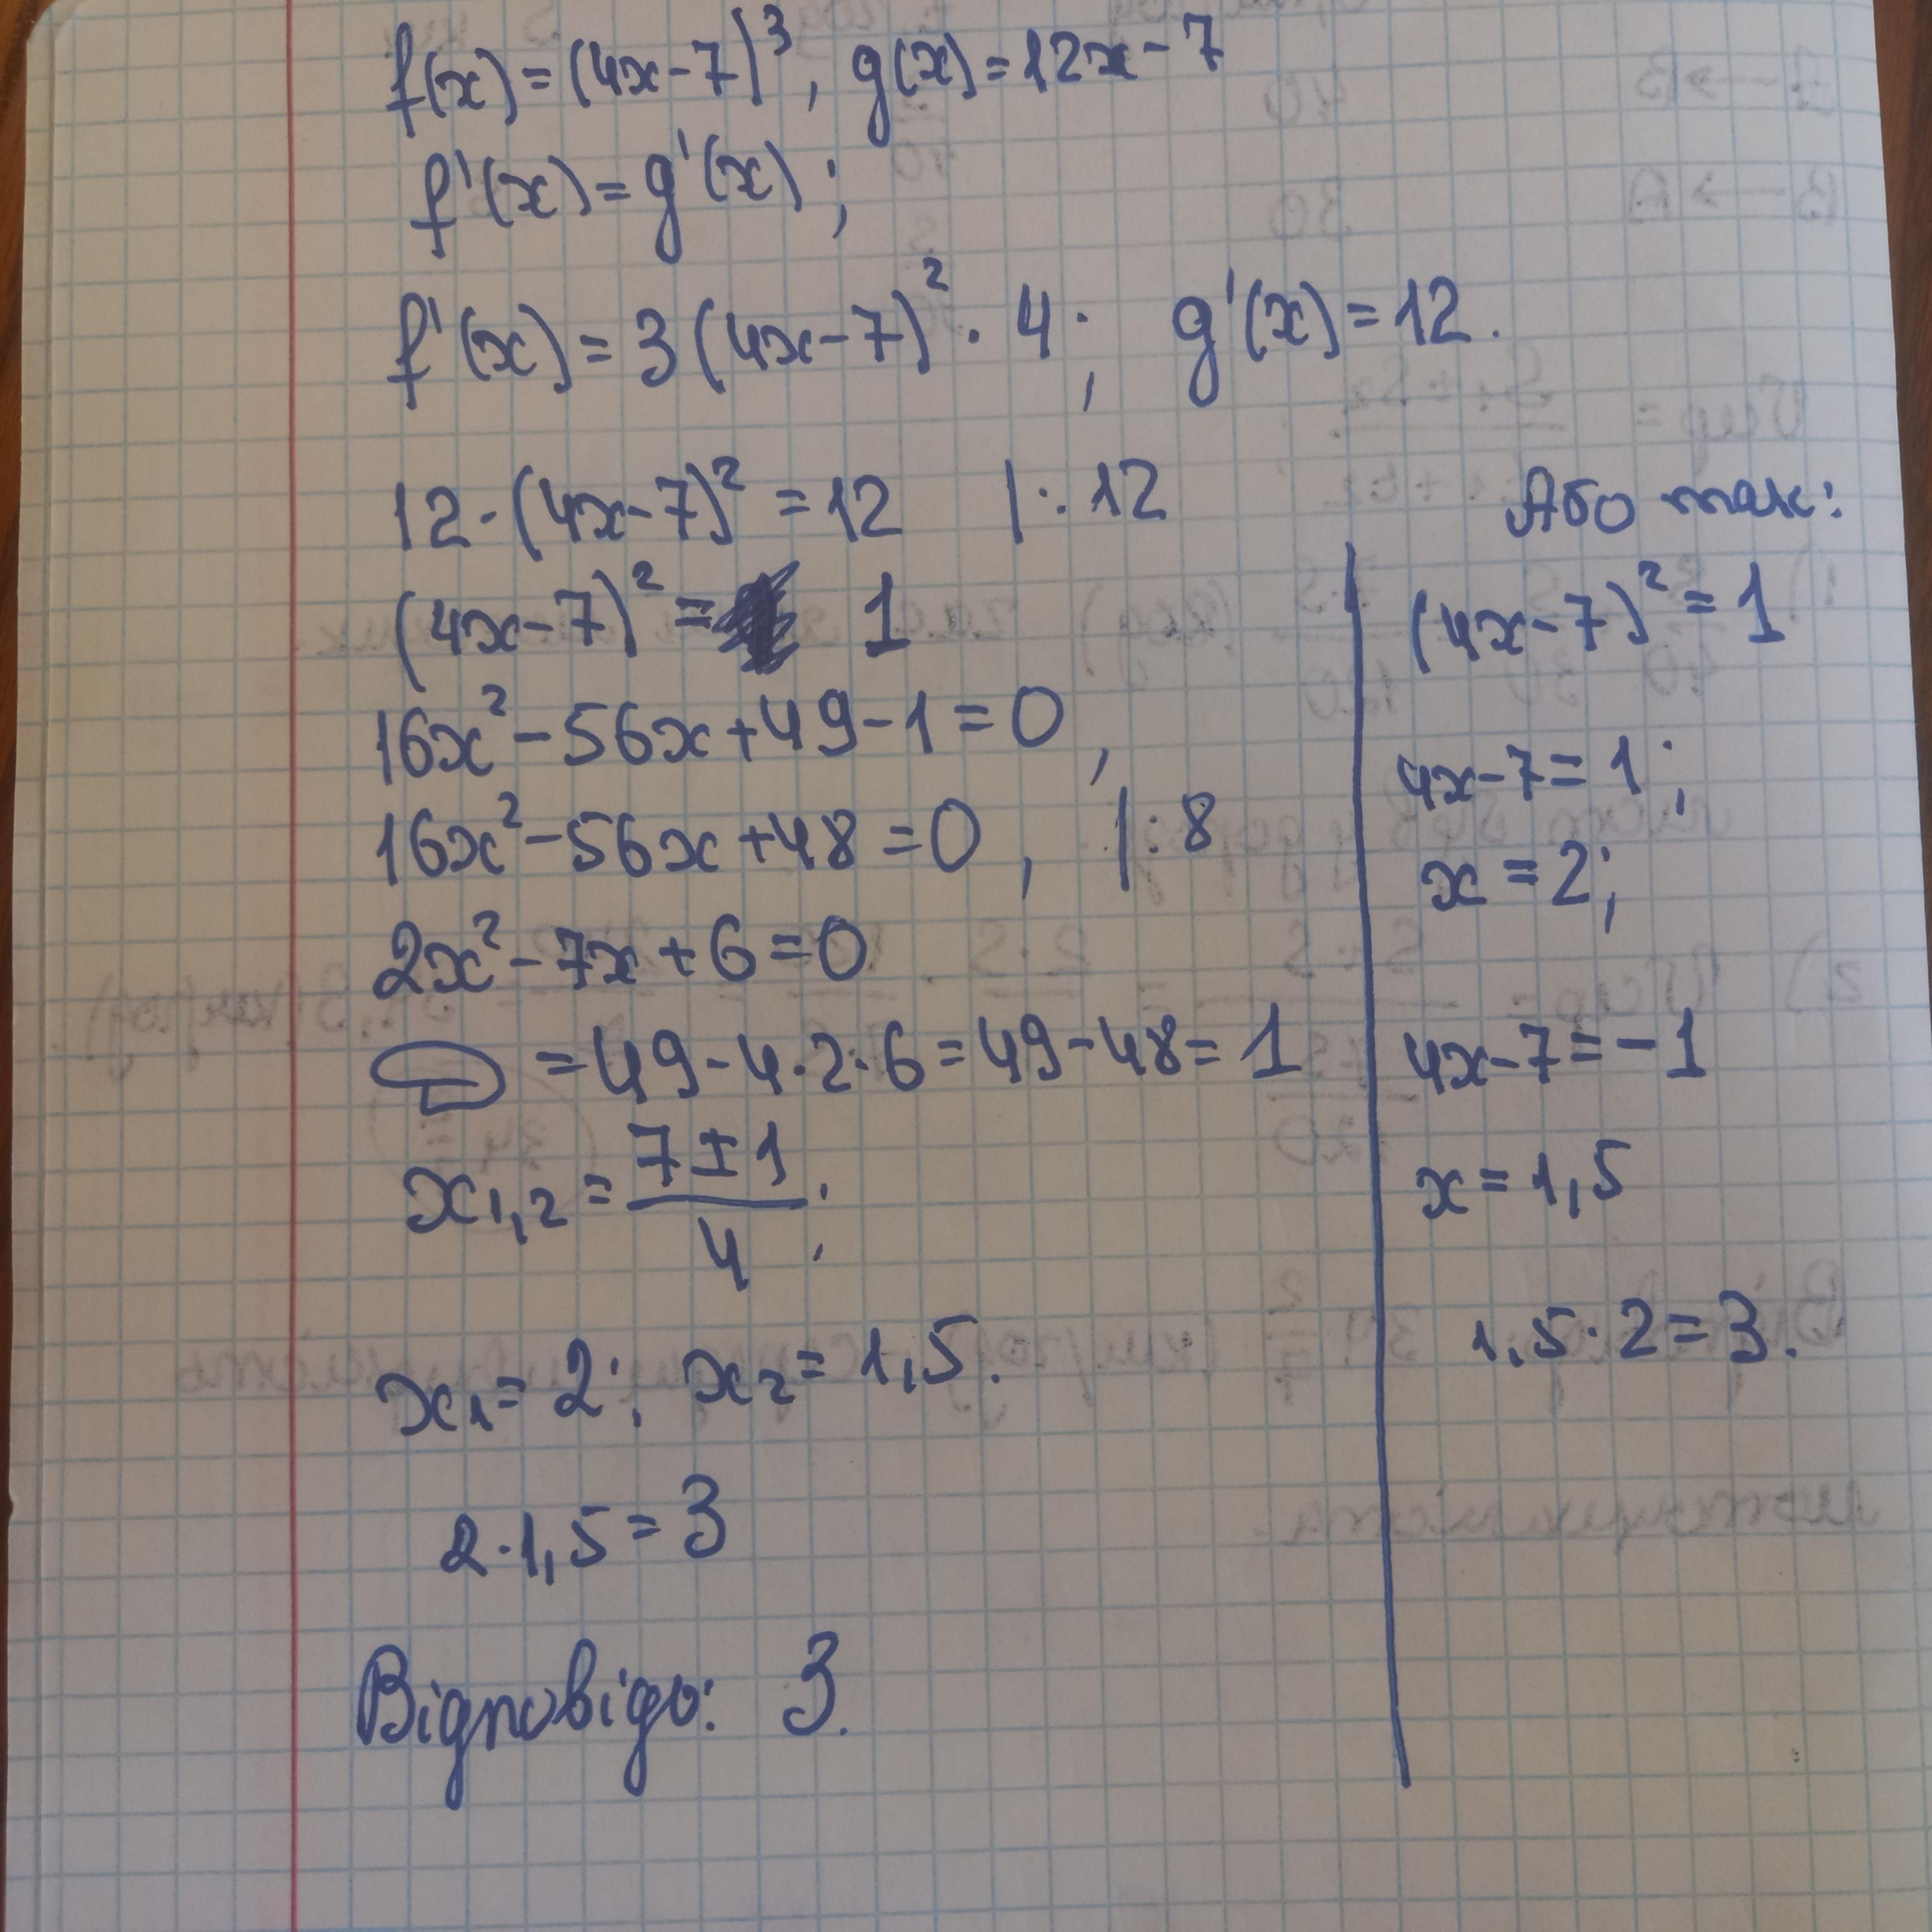 f(x) = (4x-7)³, g(x) = 12x-7
f'(x) = g'(x);
f'(x) = 3(4x-7)² · 4; g'(x) = 12.
12·(4x-7)² = 12 |:12
(4x-7)² = 1
16x² - 56x + 49 - 1 = 0,
16x² - 56x + 48 = 0, |:8
2x² - 7x + 6 = 0
D = 49 - 4·2·6 = 49 - 48 = 1
x₁,₂ = (7 ± 1)/4;
x₁ = 2; x₂ = 1,5.
2·1,5 = 3
Відповідь: 3.
Або так:
(4x-7)² = 1
4x-7 = 1;
x = 2;
4x-7 = -1
x = 1,5
1,5·2 = 3.